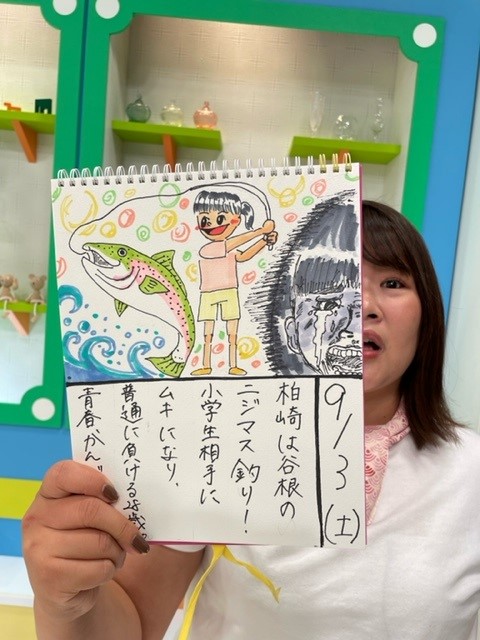 9/3(土)
柏崎は谷根の
ニジマス釣り！
小学生相手に
ムキになり、
普通に負ける28歳。
青春かん!!